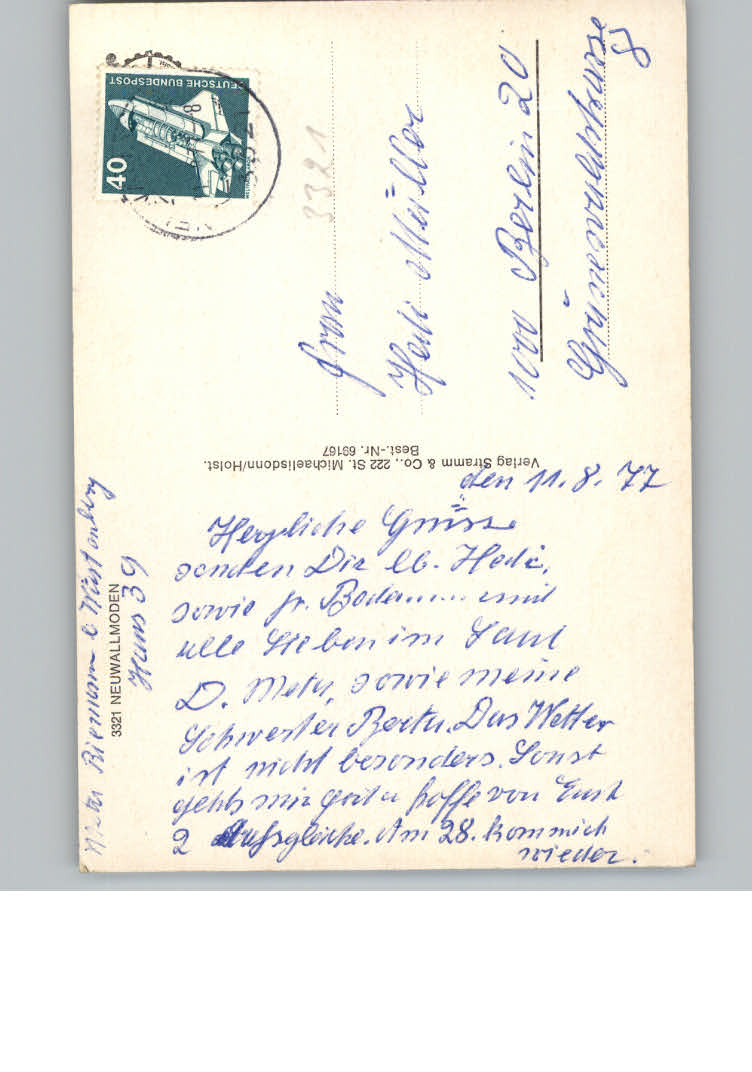 den 11.8.77
Herzliche Grüsse
senden Dir lb. Hedi,
sowie fr. und
alle lieben im Saal
D. Meta, sowie meine
Schwester Berta. Das Wetter
ist nicht besonders. Sonst
gehts mir gut u hoffe von Euch
2 . Am 28. komm ich
wieder.
Riemann b Wüstenberg
3321 NEUWALLMODEN
Haus 39
Verlag Stramm & Co., 222 St. Michaelisdonn/Holst.
Best.-Nr. 69167
DEUTSCHE BUNDESPOST
40
3321
3321
Frau
Hedi Müller
1000 Berlin 20
8